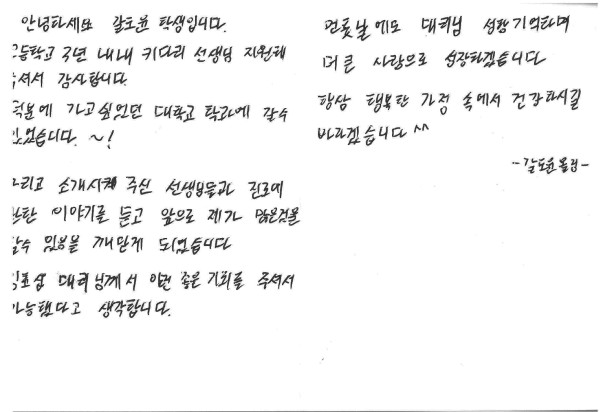 안녕하세요 갈효윤 학생입니다.
고등학교 3년 내내 키다리 선생님 지원해
주셔서 감사합니다.
덕분에 가고싶었던 대학교 학과에 갈수
있었습니다. ~!
그리고 소개시켜 주신 선생님들과 진로에
관한 이야기를 듣고 앞으로 제가 많은것을
할수 있음을 깨닫게 되었습니다
대표님께서 이런 좋은 기회를 주셔서
가능했다고 생각합니다.
먼훗날에도 대표님 성함 기억하며
더큰 사람으로 성장하겠습니다
항상 행복한 가정 속에서 건강하시길
바라겠습니다 ^^
-갈효윤 올림-